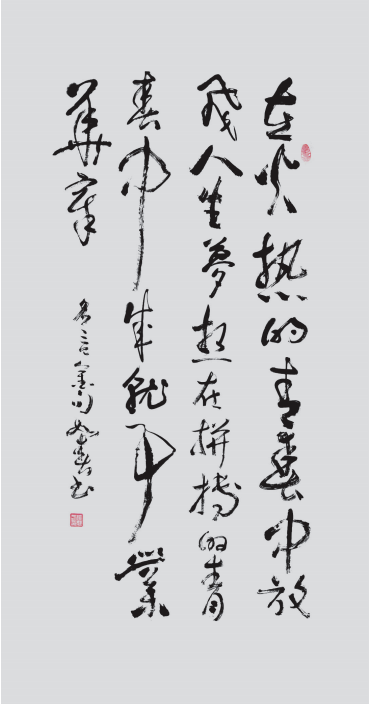 在火热的青春中放
飛人生夢想在拼搏的青
春中成就事業
華章
名言金句 书